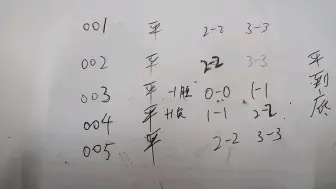 001 平 2-2 3-3
002 平 2-2 3-3
003 平 -1胜 0-0 1-1
004 平 +1负 1-1 2-2
005 平 2-2 3-3
平到底